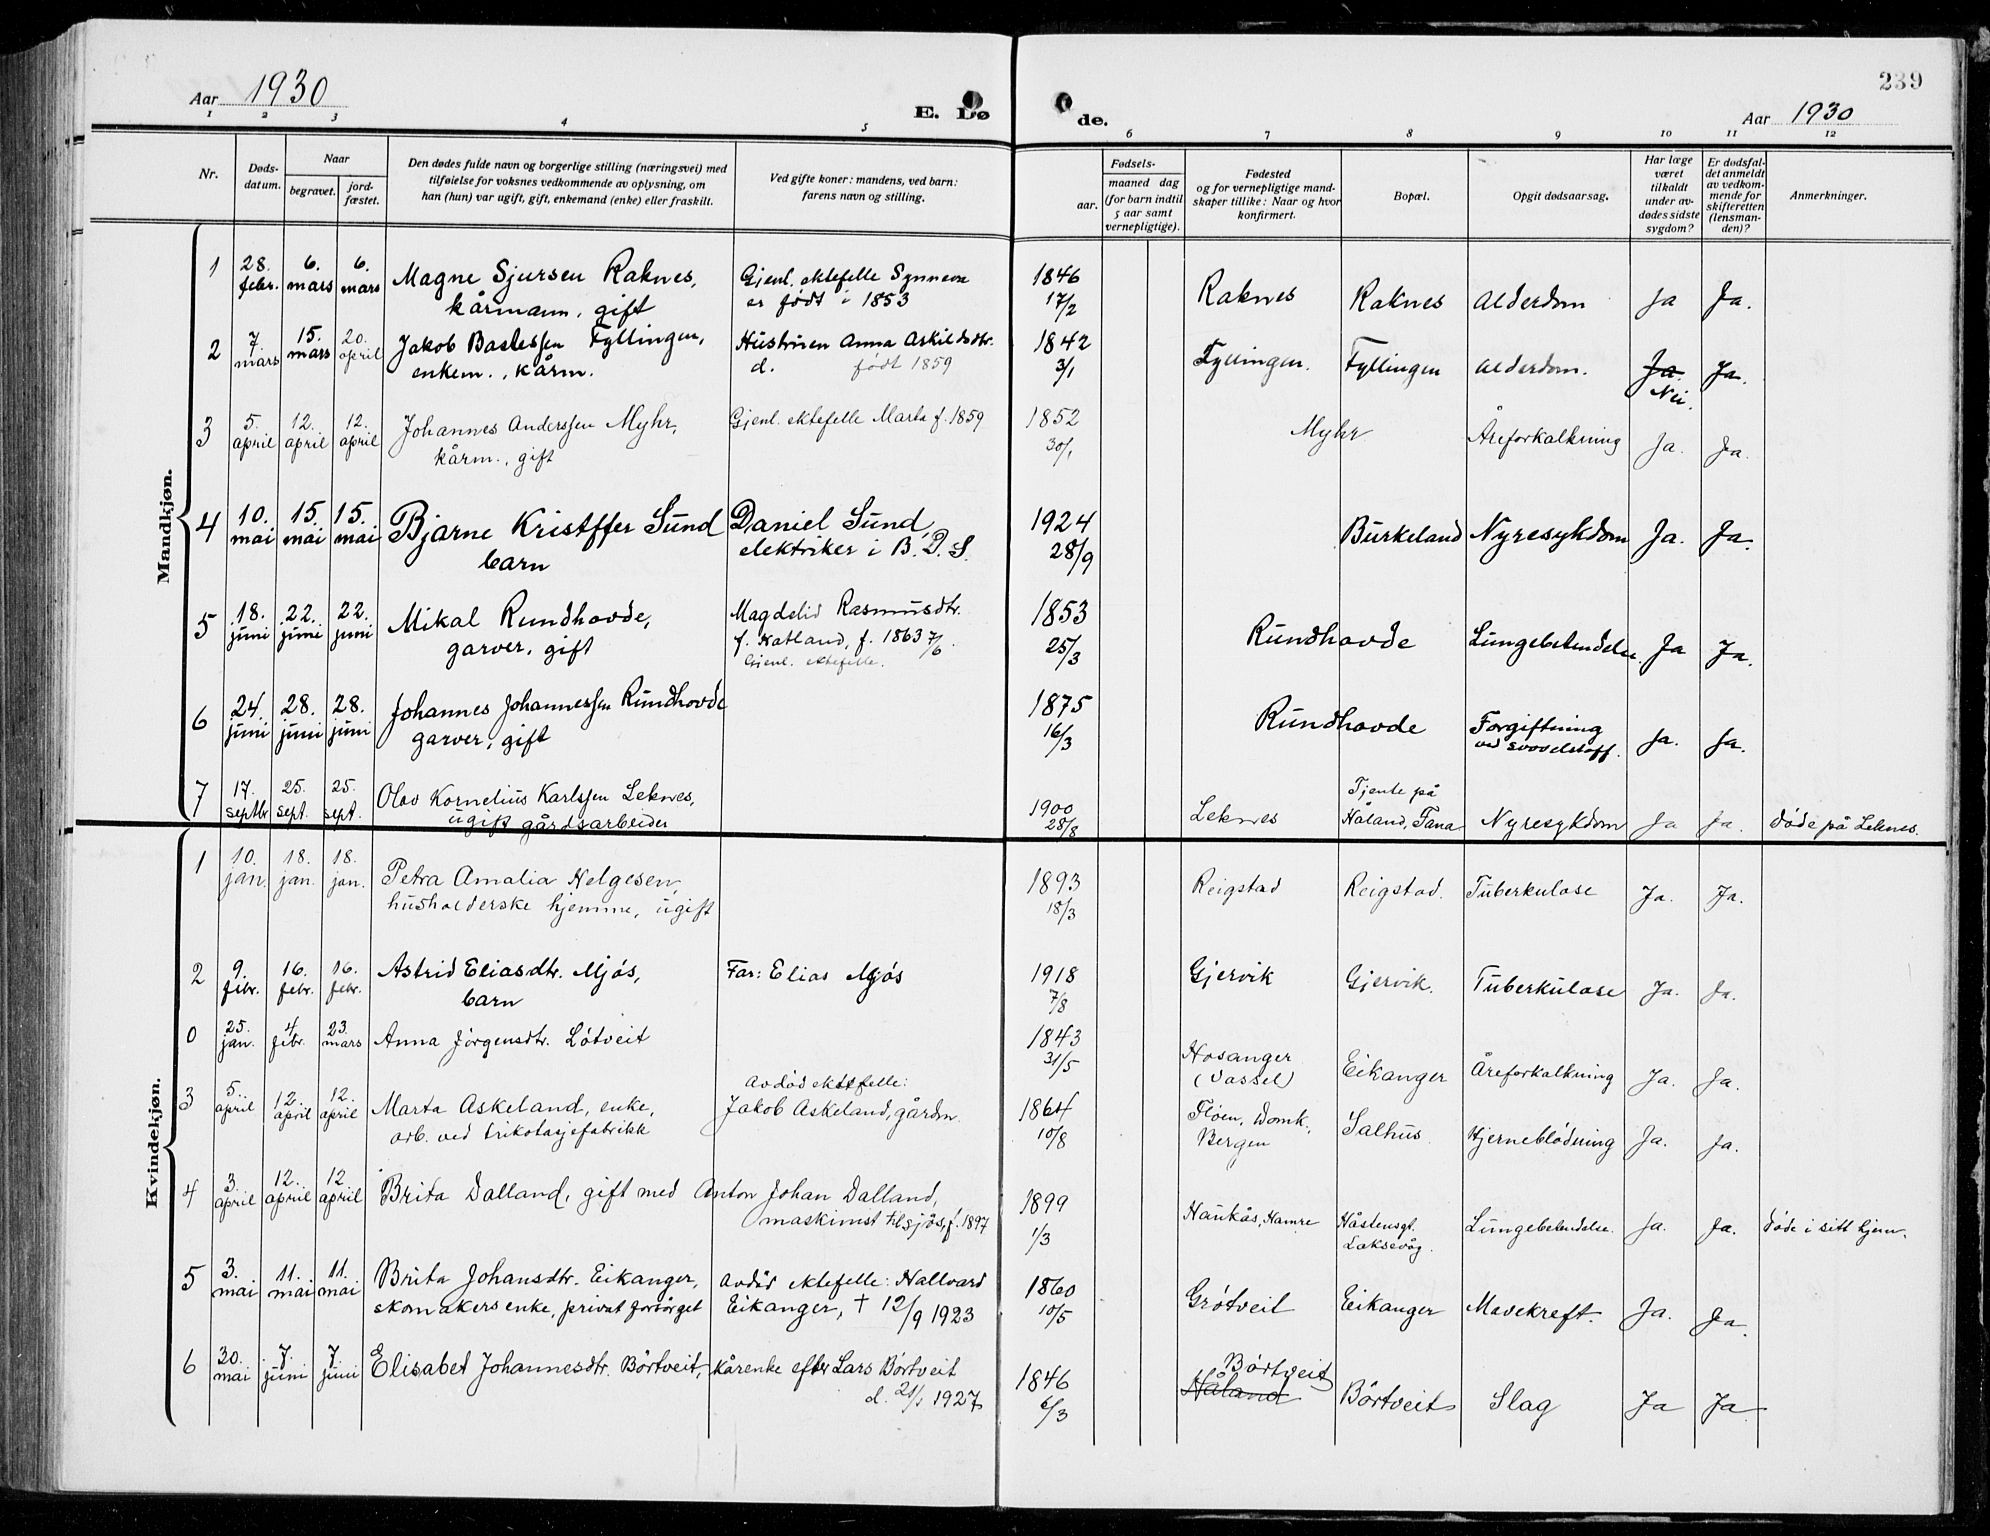 239
Aar 1930
E. Dø
de.
Aar 1930
1 2 3 4 5 6 7 8 9 10 11 12
Nr.
Døds-
datum.
Naar
begravet.
jord-
fæstet.
Den dødes fulde navn og borgerlige stilling (næringsvei) med
tilføielse for voksnes vedkommende av oplysning, om
han (hun) var ugift, gift, enkemand (enke) eller fraskilt.
Ved gifte koner: mandens, ved barn:
farens navn og stilling.
Fødsels-
aar.
maaned dag
(for barn indtil
5 aar samt
vernepligtige).
Fødested
og for vernepligtige mand-
skaper tillike: Naar og hvor
konfirmert.
Bopæl.
Opgit dødsaarsag.
Har læge
været
tilkaldt
under av-
dødes sidste
sygdom?
Er dødsfal-
det anmeldt
av vedkom-
mende for
skifteretten
(lensman-
den)?
Anmerkninger.
Mandkjøn.
1 28. febr. 6. mars 6. mars Magne Sjursen Raknes, Gjenl. ektefelle Synneva 1846 Raknes Raknes Alderdom Ja Ja.
kårmann, gift er født i 1853 17/2
2 7. mars 15. mars 20. april Jakob Bastessen Fyllingen, Hustruen Anna Askildsdtr. 1842 Fyllingen. Fyllingen Alderdom. Ja. Ja.
enkem., kårm. d. født 1859 3/1 Nei.
3 5. april 12. april 12. april Johannes Anderssen Myhr, Gjenl. ektefelle Marta f. 1859 1852 Myhr Åreforkalkning Ja. Ja.
kårm., gift 30/1
4 10. mai 15. mai 15. mai Bjarne Kristffer Sund Daniel Sund, 1924 Burkeland Nyresykdom Ja. Ja.
barn elektriker i B. D. S. 28/9
5 18. juni 22. juni 22. juni Mikal Rundhovde, Magdelid Rasmusdtr. 1853 Rundhovde Lungebetendelse Ja Ja.
garver, gift f. Hatland, f. 1863 7/6. 25/3
Gjenl. ektefelle.
6 24. juni 28. juni 28. juni Johannes Johannessen Rundhovde 1875 Rundhovde Forgiftning Ja. Ja.
garver, gift 16/3 ved svovelstoff.
7 17. septbr 25. sept. 25. sept. Olav Kornelius Karlssen Leknes, 1900 Leknes Tjente på Nyresykdom Ja Ja. døde på Leknes.
ugift gårdsarbeider 28/8 Håland, Fana
Kvindekjøn.
1 10. jan. 18. jan. 18. jan. Petra Amalia Helgesen, 1893 Reigstad Reigstad. Tuberkulose Ja. Ja.
husholderske hjemme, ugift 18/3
2 9. febr. 16. febr. 16. febr. Astrid Eliasdtr. Mjøs, Far: Elias Mjøs 1918 Gjervik Gjervik. Tuberkulose Ja. Ja.
barn 7/8
0 25. jan. 4 febr. 23. mars Anna Jørgensdtr. Løtveit 1843 Hosanger Eikanger Åreforkalkning Ja. Ja.
31/5 (Vassel)
3 5. april 12. april 12. april Marta Askeland, enke, Avdød ektefelle: 1864 Fløen, Domk. Salhus Hjerneblødning Ja. Ja.
arb. ved trikotasjefabrikk Jakob Askeland, gårdm. 10/8 Bergen
4 3. april 12. april 12 april Brita Dalland, gift med Anton Johan Dalland, 1899 Haukås, Hamre Håstensgt. Lungebetendelse. Ja. Ja. døde i sitt hjem.
maskinist tilsjøs, f. 1897 1/3 Laksevåg.
5 3. mai 11. mai 11. mai Brita Johansdtr. Eikanger, Avdød ektefelle: Hallvard 1860 Grøtveit Eikanger Mavekreft. Ja. Ja.
skomakers enke, privat forsørget Eikanger, † 12/9 1923 10/5
6 30. mai 7. juni 7 juni Elisabet Johannesdtr. Børtveit, kårenke efter Lars Børtveit 1846 Børtveit Børtveit Slag Ja Ja
d. 21/1 1927 6/3 Håland